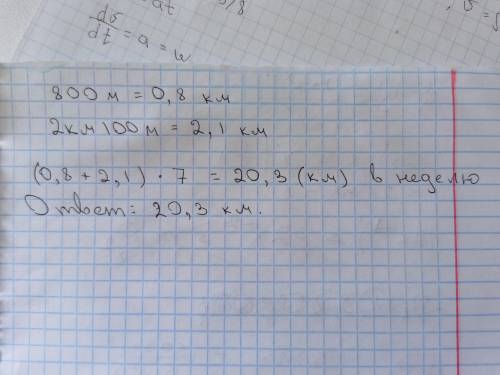 dσ/dt = a = w
800 м = 0,8 км
2км 100 м = 2,1 км
(0,8 + 2,1) · 7 = 20,3 (км) в неделю
Ответ: 20,3 км.